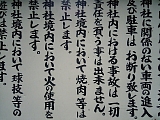 神社に関係のない車両の進入
及び駐車はお断り致します。
神社境内における事故は一切
責任を負う事は出来ません。
神社境内において焼肉等は
禁止します。
神社境内において火の使用を
禁止します。
神社境内において球技等の
遊びは禁止します。